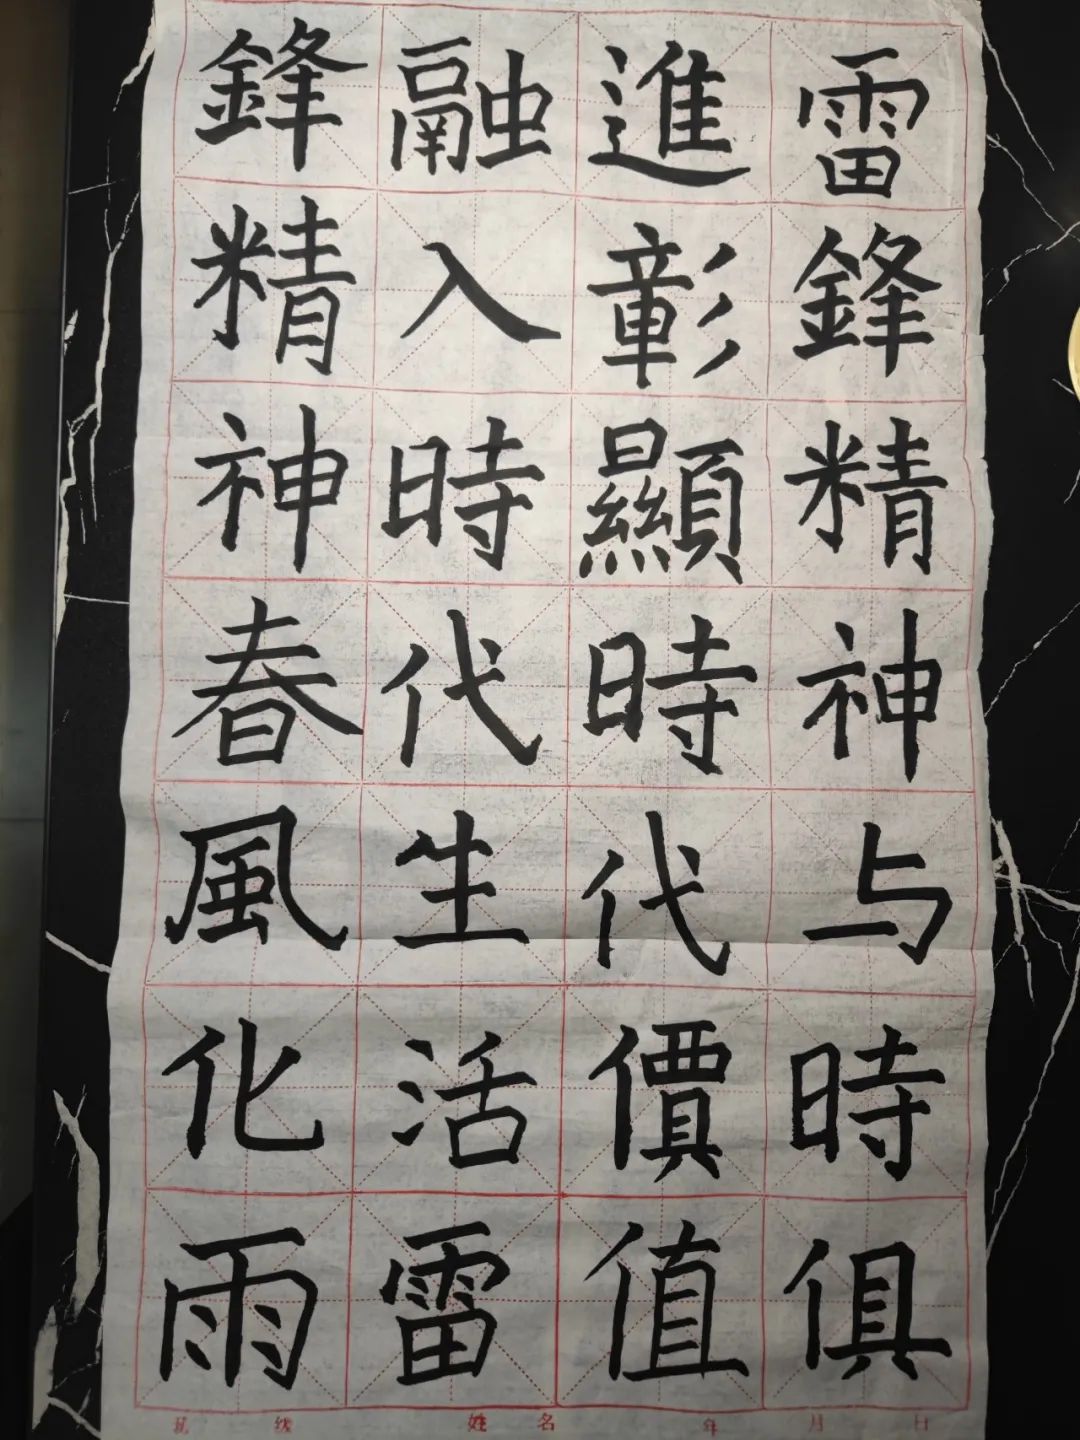 雷鋒精神与時俱
進彰顯時代價值
融入時代生活雷
鋒精神春風化雨
班 级 姓 名 年 月 日